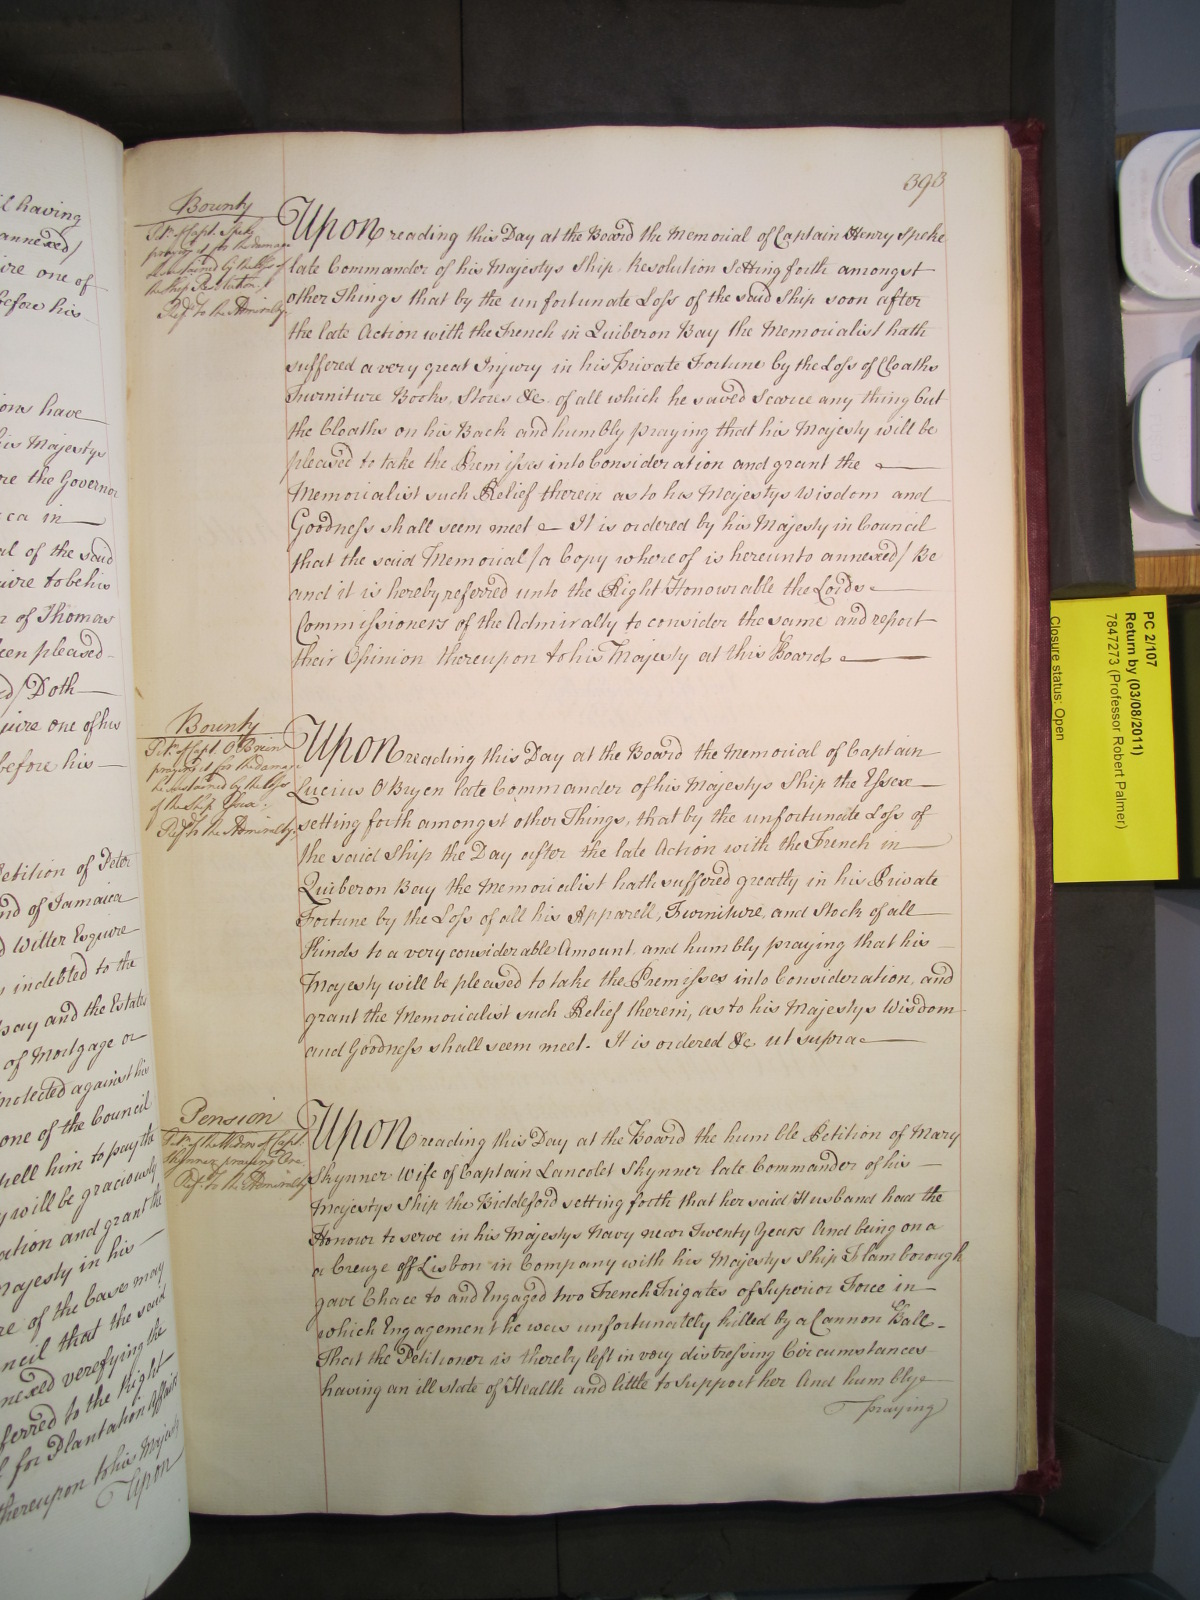 il having
annexed/
ire one of
before his
ions have
his Majestys
re the Governor
ca in
al of the said
uire to be his
r of Thomas
een pleased
ed/ Doth
uire one of his
before his
etition of Peter
nd of Jamaica
d Witter Esquire
s indebted to the
say and the Estate
of Mortgage or
nolected against his
one of the Council
pell him to pay the
y will be graciously
ation and grant the
Majesty in his
re of the Case may
ncil that the said
nexed verefying the
ferred to the Right
l for Plantation Affairs
thereupon to his Majesty
Upon
393
Bounty
Petn. of Capt. Speke
praying for the damage
he sustained by the loss of
the Ship Resolution
Refd. to the Admiralty.
Upon reading this Day at the Board the Memorial of Captain Henry Speke
late Commander of his Majestys Ship Resolution Setting forth amongst
other Things that by the unfortunate Loss of the said Ship soon after
the late Action with the French in Quiberon Bay the Memorialist hath
suffered a very great Injury in his Private Fortune by the Loss of Cloaths
Furniture Books, Stores &c. of all which he saved Scarce any thing but
the Cloaths on his Back and humbly praying that his Majesty will be
pleased to take the Premisses into Consideration and grant the
Memorialist such Relief therein as to his Majestys Wisdom and
Goodness shall seem meet It is ordered by his Majesty in Council
that the said Memorial/a Copy whereof is hereunto annexed/ Be
and it is hereby referred unto the Right Honourable the Lords
Commissioners of the Admiralty to consider the same and report
their Opinion thereupon to his Majesty at this Board
Bounty
Petn. of Capt. O'Brien
praying for the damage
he sustained by the loss
of the Ship Essex.
Refd. to the Admiralty.
Upon reading this Day at the Board the Memorial of Captain
Lucius O'Bryen late Commander of his Majestys Ship the Essex
setting forth amongst other Things, that by the unfortunate Loss of
the said Ship the Day after the late Action with the French in
Quiberon Bay the Memorialist hath suffered greatly in his Private
Fortune by the Loss of all his Apparell, Furniture, and Stock of all
Kinds to a very considerable Amount, and humbly praying that his
Majesty will be pleased to take the Premisses into Consideration, and
grant the Memorialist such Relief therein, as to his Majestys Wisdom
and Goodness shall seem meet. It is ordered &c. ut supra
Pension
Petn. of the Widow of Capt.
Skynner praying One.
Ref. to the Admiralty
Upon reading this Day at the Board the humble Petition of Mary
Skynner Wife of Captain Lancelot Skynner late Commander of his
Majestys Ship the Biddeford setting forth that her said Husband had the
Honour to serve in his Majestys Navy near Twenty Years And being on a
a Creuze off Lisbon in Company with his Majestys Ship Flamborough
gave Chace to and Engaged two French Frigates of Superior Force in
which Engagement he was unfortunately killed by a Cannon Ball.
That the Petitioner is thereby left in very distressing Circumstances
having an ill state of Health and little to support her And humbly
praying
PC 2/107
Return by (03/08/2011)
7847273 (Professor Robert Palmer)
Closure status: Open